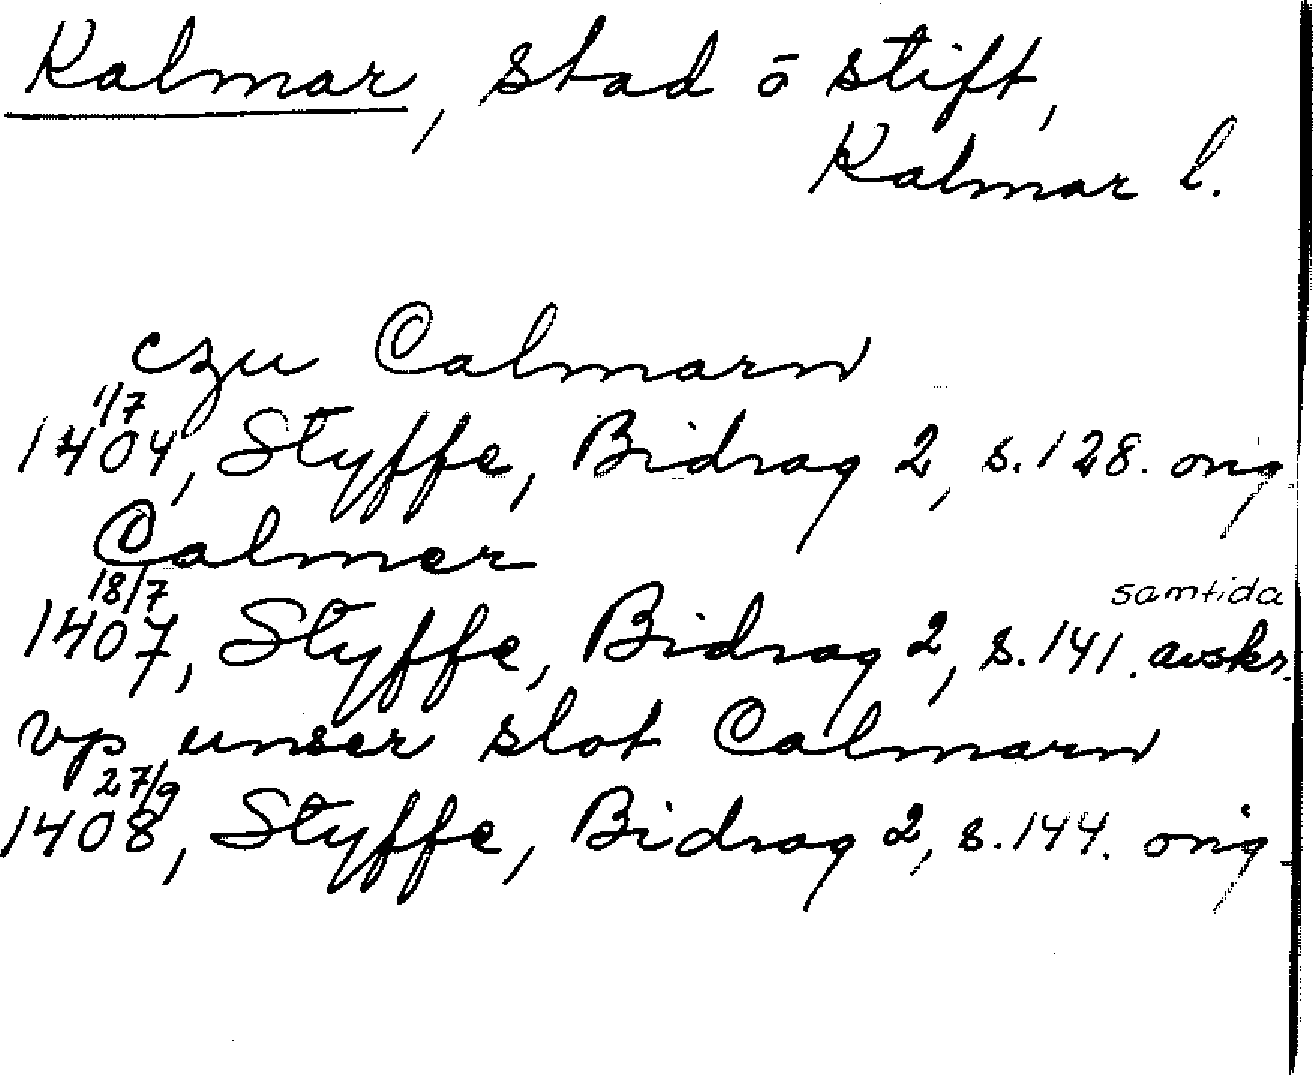 Kalmar, stad ō stift,
Kalmar l.
czu Calmarn
1/7
1404, Styffe, Bidrag 2, s. 128. orig
Calmer
18/7
samtida
1407, Styffe, Bidrag 2, s. 141. avskr.
vp unser slot Calmarn
27/9
1408, Styffe, Bidrag 2, s. 144. orig